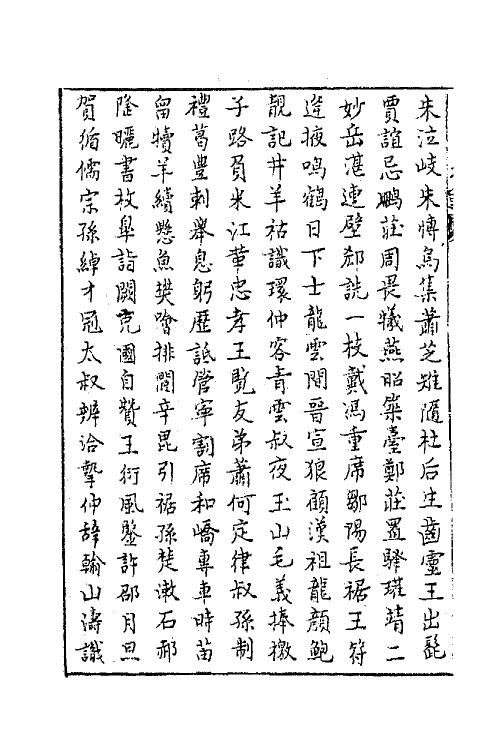 朱泣岐朱愽烏集蕭芝雉隨杜后生齒靈王出髭
賈誼忌鵩莊周畏犧燕昭築臺鄭莊置驛瓘靖二
妙岳湛連壁郄詵一枝戴馮重席鄒陽長裾王符
逢掖鳴鶴日下士龍雲間晉宣狼顧漢祖龍顔鮑
靚記井羊祜識環仲容青雲叔夜玉山毛義捧檄
子路負米江革忠孝王覽友弟蕭何定律叔孫制
禮葛豐刺舉息躬歷詆管寧割席和嶠專車時苗
留犢羊續懸魚樊噲排闥辛毘引裾孫楚漱石郝
隆曬書枚臯詣闕充國自贊王衍風鑒許劭月旦
賀循儒宗孫綽才冠太叔辨洽摯仲辭翰山濤識